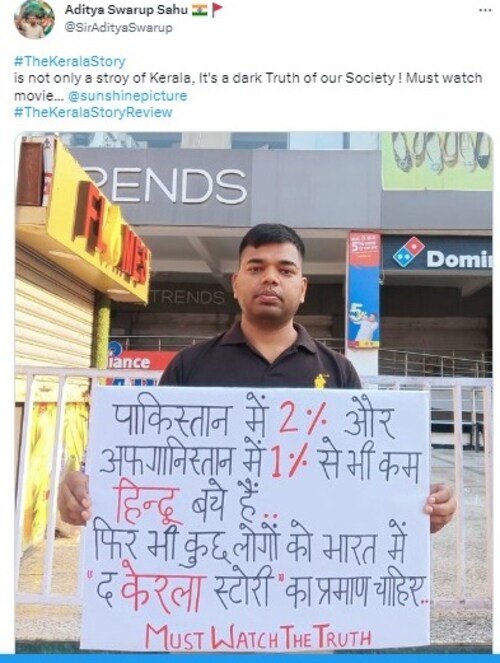 Aditya Swarup Sahu
@SirAdityaSwarup
#TheKeralaStory
is not only a stroy of Kerala, It's a dark Truth of our Society ! Must watch
movie... @sunshinepicture
#TheKeralaStoryReview
RENDS
TRENDS
Domi
iance
पाकिस्तान में 2% और
अफगानिस्तान में 1% से भी कम
हिन्दू बचे हैं..
फिर भी कुछ लोगों को भारत में
"द केरला स्टोरी" का प्रमाण चाहिए..
MUST WATCH THE TRUTH